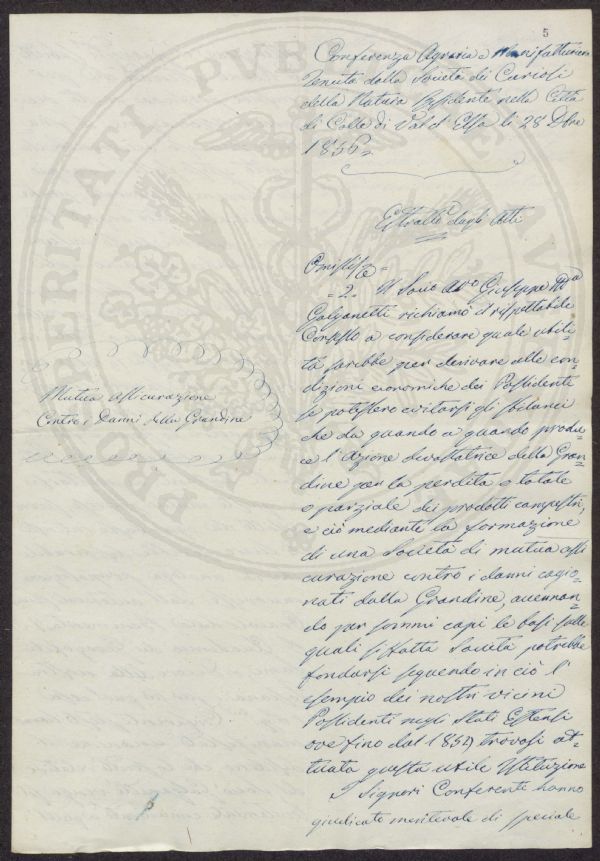 5
Conferenza Agraria e Manifatturiera
tenuta dalla Società dei Curiosi
della Natura Residente nella Città
di Colle di Val d'Elsa li 28 Dbre
1856.
Estratto dagli Atti
Omissis &
"2." Il Socio Giuseppe
Galganetti richiamò il rispettabile
Consesso a considerare quale utili-
tà sarebbe per derivare alle con-
dizioni economiche dei Possidenti
se potessero evitarsi gli sbilanci
che da quando a quando produ-
ce l'azione devastatrice della Gran-
dine per la perdita o totale
o parziale dei prodotti campestri,
e ciò mediante la formazione
di una Società di mutua assi
curazione contro i danni cagio-
nati dalla Grandine, accennan-
do per sommi capi le basi sulle
quali siffatta Società potrebbe
fondarsi seguendo in ciò l'
esempio dei nostri vicini
Possidenti negli Stati Estensi
ove fino dal trovasi at-
tuata questa utile Istituzione
I Signori Conferenti hanno
giudicato meritevole di speciale
Mutua assicurazione
Contro i Danni della Grandine
PROSPERITATI PVBLICAE AV